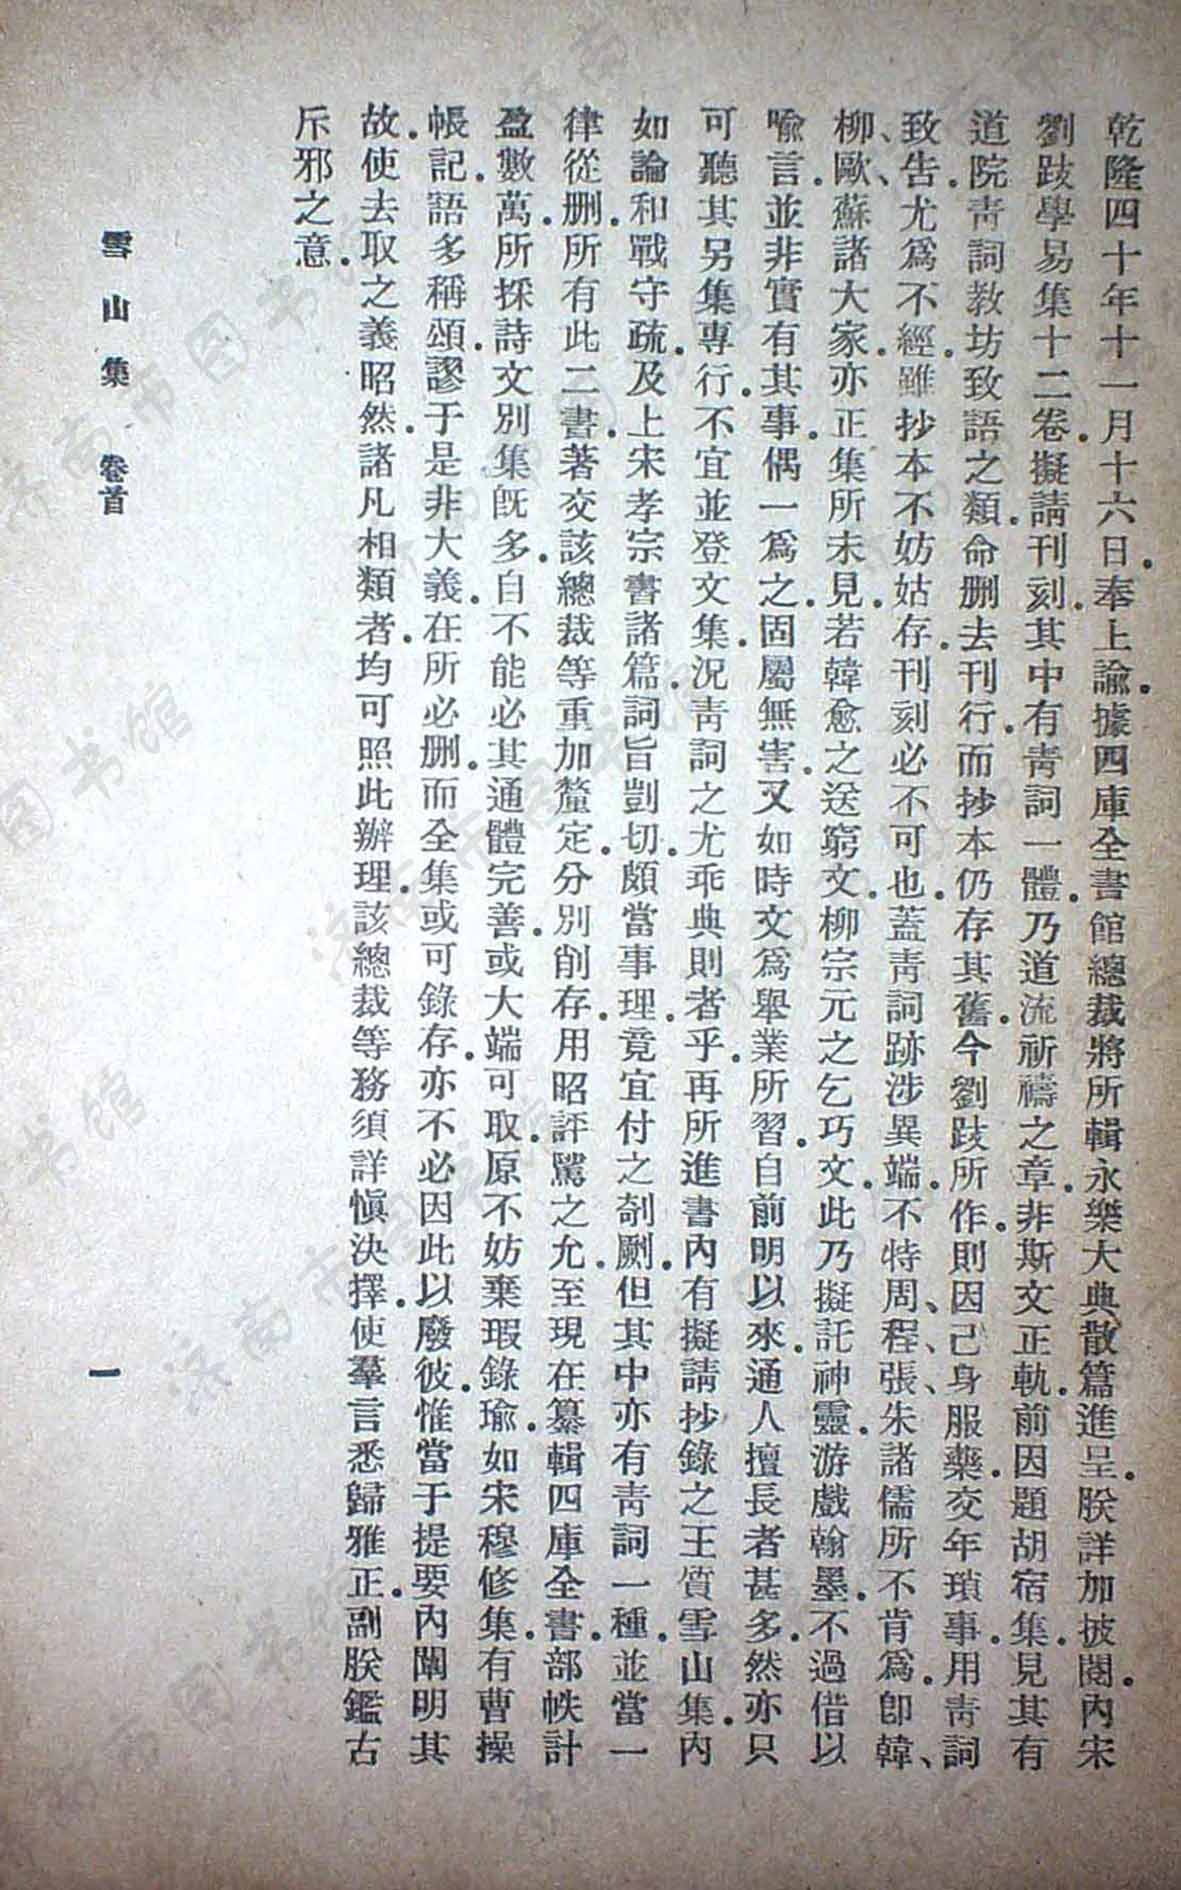 乾隆四十年十一月十六日。奉上諭。據四庫全書館總裁將所輯永樂大典散篇進呈。朕詳加披閱。內宋
劉跂學易集十二卷。擬請刊刻。其中有青詞一體。乃道流祈禱之章。非斯文正軌。前因題胡宿集。見其有
道院青詞教坊致語之類。命刪去刊行。而抄本仍存其舊。今劉跂所作。則因己身服藥交年瑣事。用青詞
致告。尤爲不經。雖抄本不妨姑存。刊刻必不可也。蓋青詞跡涉異端。不特周、程、張、朱諸儒所不肯爲。卽韓、
柳、歐、蘇諸大家。亦正集所未見。若韓愈之送窮文。柳宗元之乞巧文。此乃擬託神靈。游戲翰墨。不過借以
喻言。並非實有其事。偶一爲之。固屬無害。又如時文爲舉業所習。自前明以來。通人擅長者甚多。然亦只
可聽其另集專行。不宜並登文集。況青詞之尤乖典則者乎。再所進書內有擬請抄錄之王質雪山集。內
如論和戰守疏。及上宋孝宗書諸篇。詞旨剴切。頗當事理。竟宜付之剞劂。但其中亦有青詞一種。並當一
律從刪。所有此二書。著交該總裁等重加釐定。分別削存。用昭評騭之允。至現在纂輯四庫全書。部帙計
盈數萬。所採詩文別集旣多。自不能必其通體完善。或大端可取。原不妨棄瑕錄瑜。如宋穆修集。有曹操
帳記。語多稱頌。謬于是非大義。在所必刪。而全集或可錄存。亦不必因此以廢彼。惟當于提要內闡明其
故。使去取之義昭然。諸凡相類者。均可照此辦理。該總裁等務須詳愼決擇。使羣言悉歸雅正。副朕鑑古
斥邪之意。
雪山集 卷首
一
济南市图书馆